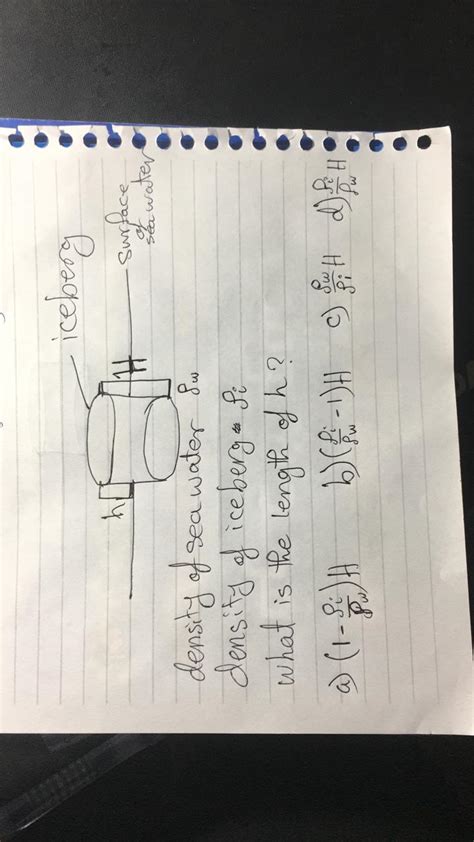 iceberg
h
H
surface
of
sea water
density of sea water ρw
density of iceberg ρi
what is the length of h?
a) (1-ρi/ρw)H b) (ρi/ρw-1)H c) ρw/ρi H d) ρi/ρw H